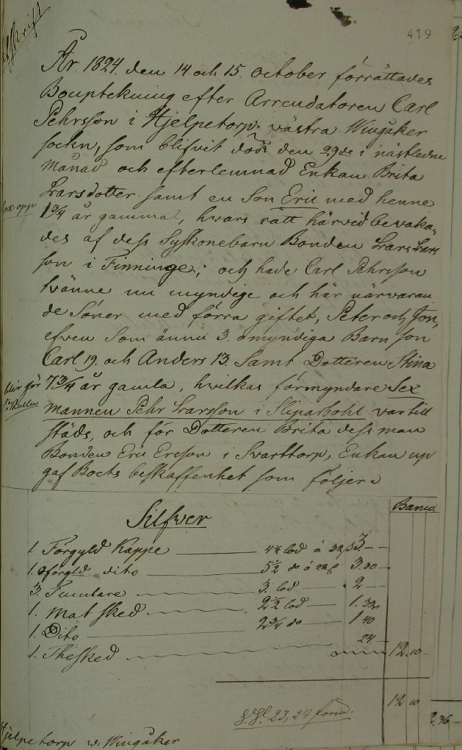 Afskrift
419
År 1824. den 14 och 15. october förrättades
Bouptekning efter Arrendatoren Carl
Pehrsson i Hjelpetorp västra Wingåker
sockn, som blifvit död den 29de i nästleden
Månad och efterlemnad Enkan Brita
Larsdotter samt en Son Eric med henne
1 3/4 år gammal, hvars rätt härvid bevaka-
des af dess Syskonebarn Bonden Lars Lars
son i Finninge; och hade Carl Pehrsson
tvänne nu myndige och här närvaran
de Söner med förra giftet, Peter och Jon,
efven som ännu 3. omyndiga Barn Son
Carl 19 och Anders 13. Samt Dotteren Stina
7 3/4 år gamla, hvilkas förmyndare Sex
mannen Pehr Larsson i Sliparbohl var till
städs, och för Dotteren Brita dess man
Bonden Eric Ersson i Svarttorp, Enkan up
gaf Boets beskaffenhet som följer:
Banco
Silfwer
1. Förgyld Kappe 4 1/2 lod 3 —
1. oförgyld dito 5 1/2 do 3. 30 —
3. Tumlare 3. lod 2 —
1. Matsked 2 1/2 lod 1. 32
1. Dito 2 3/4 do 1 40
1. Thesked 24 12. 10
12 10
23, 24
Hjelpetorp v. Wingåker